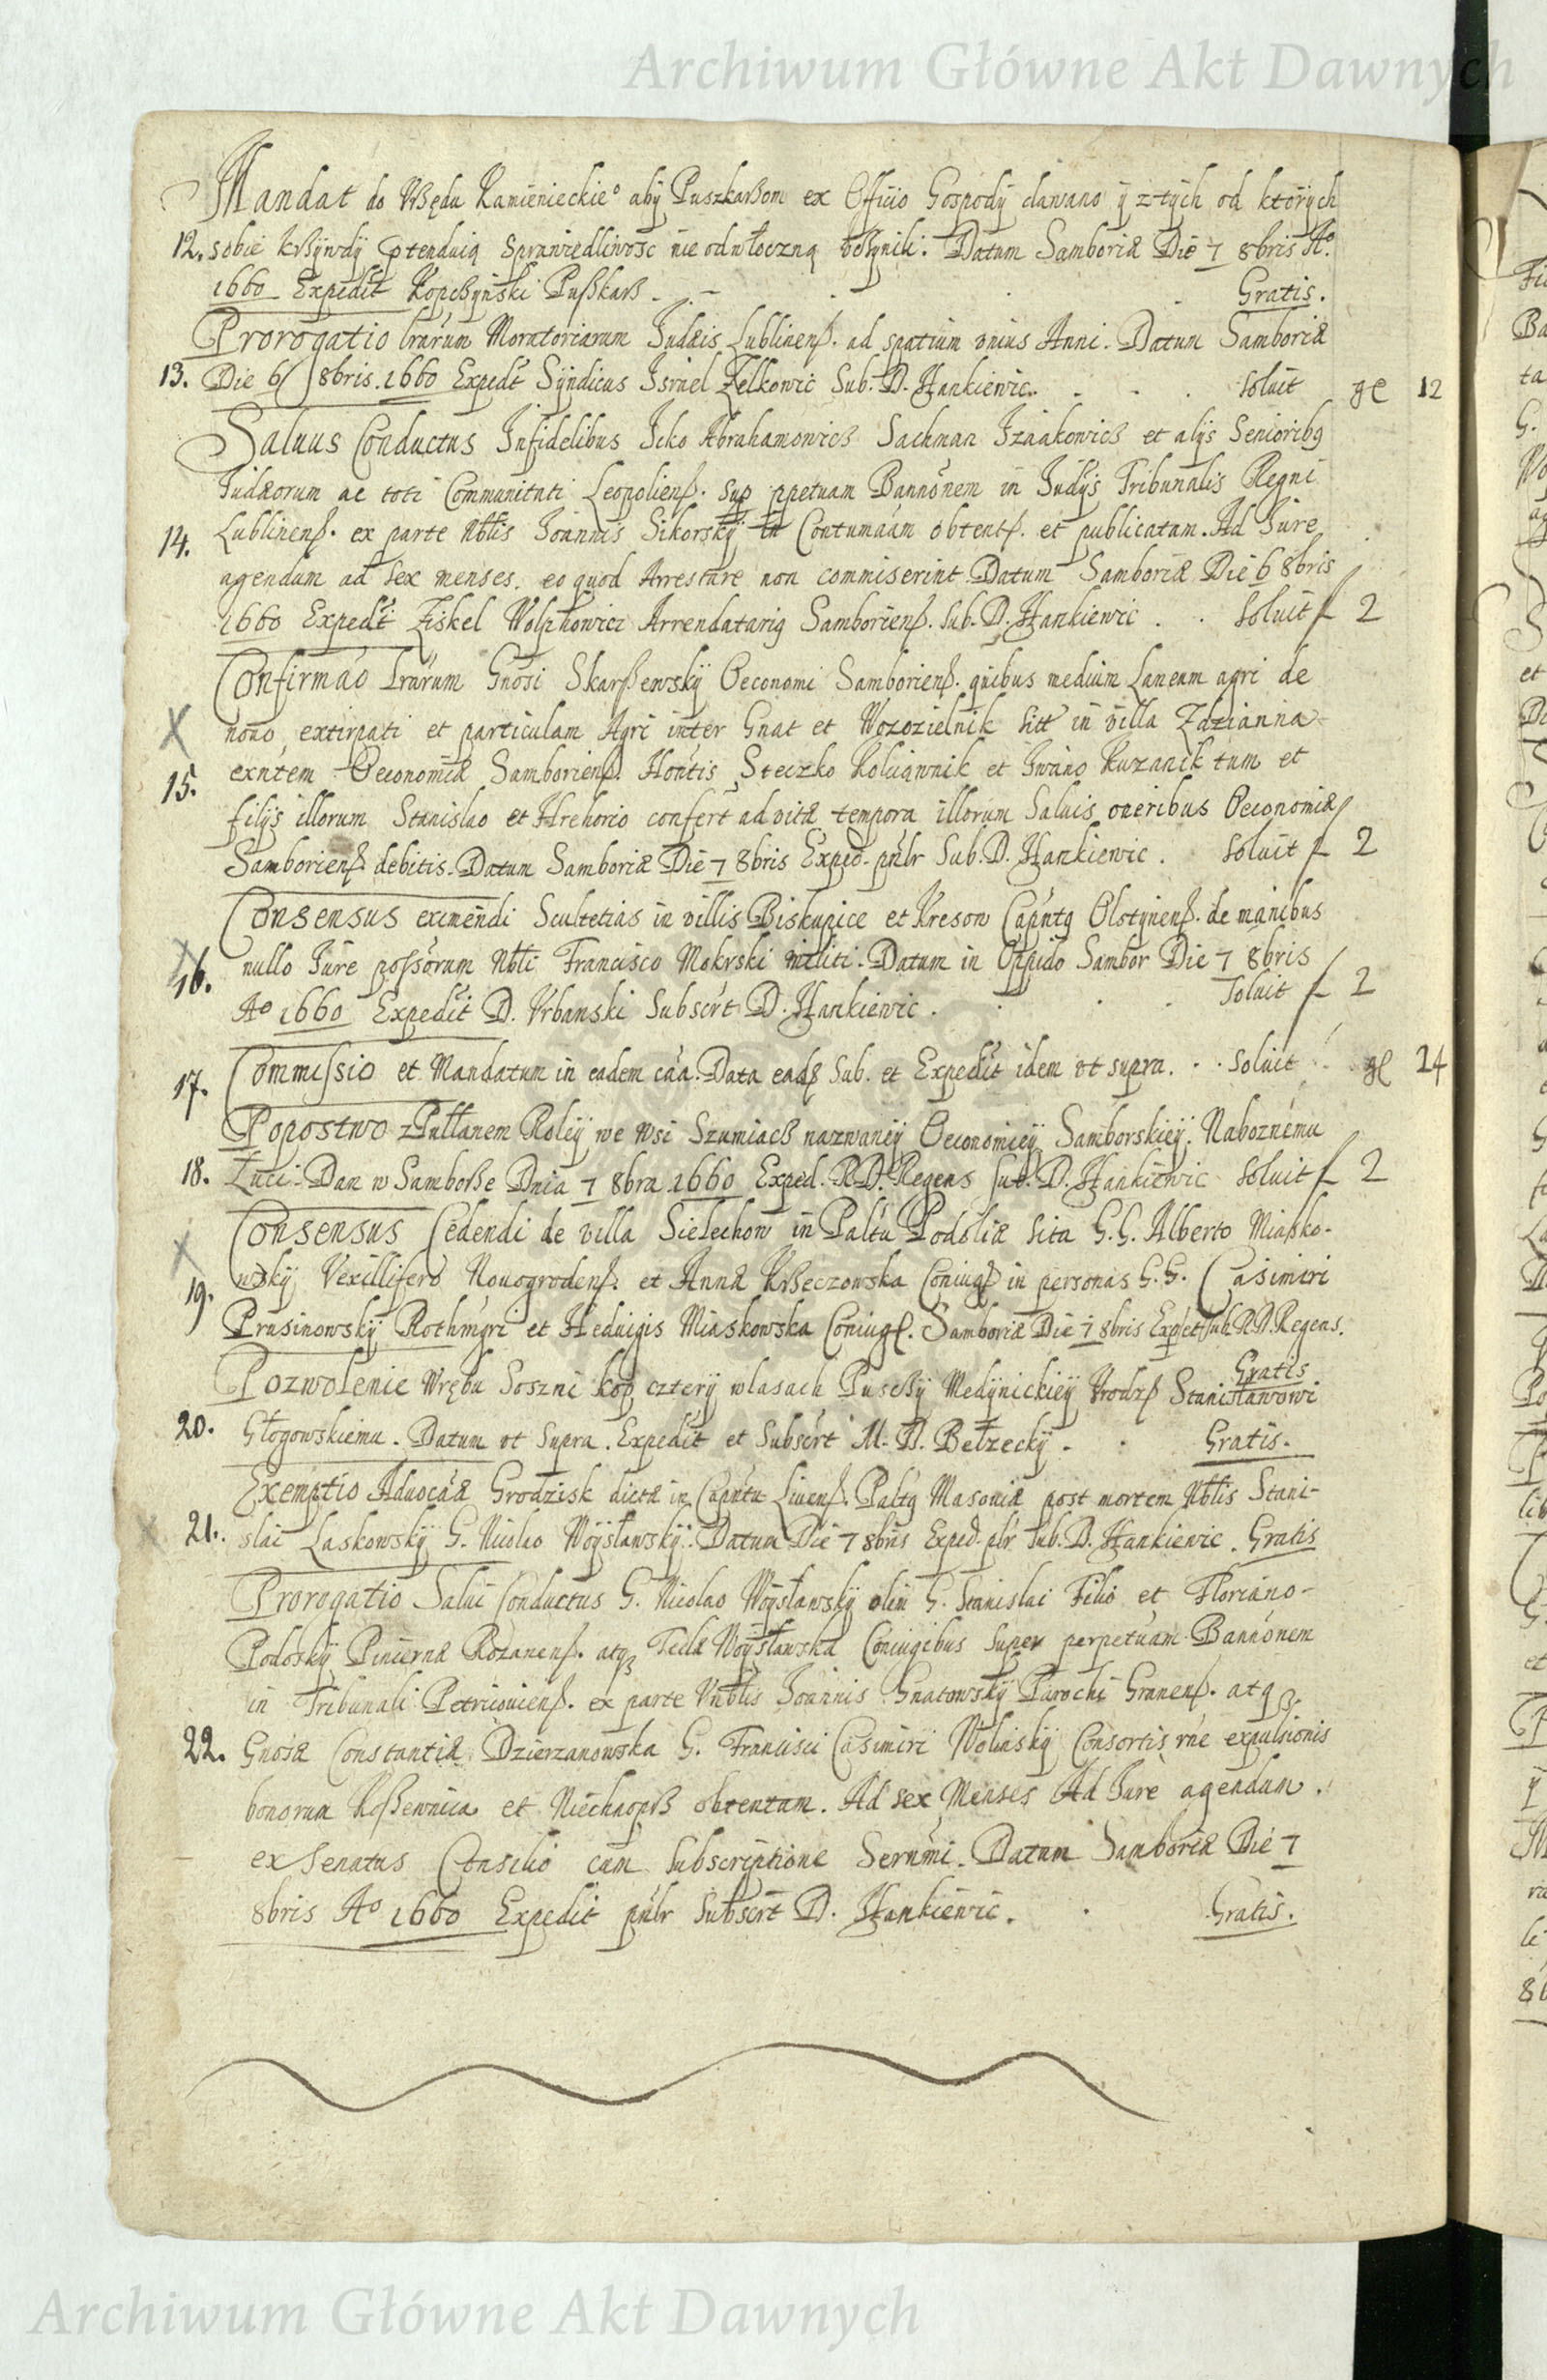 Archiwum Główne Akt Dawnych
Mandat do Vrzędu Kamienieckie° aby Puszkarzom ex Officio Gospody dawano y z tych od których
12. sobie krzywdy ptenduią Sprawiedliwosc nie odwłoczną vczynili. Datum Samboriæ Die 7 8bris A°
1660 Expedit Kopczyński Puszkarz . – . . . Gratis.
Prorogatio lrarum Moratoriarum Judæis Lublinenß. ad spatium vnius Anni. Datum Samboriæ
13. Die 6 8bris. 1660 Expedt Syndicus Israel Zelkowic Sub. D. Hankiewic. . . . Soluit ge 12
Saluus Conductus Infidelibus Icko Abrahamowicz Sachman Izaakowicz et alys Senioribq
Judæorum ac toti Communitati Leopolienß. Sup ppetuam Bannonem in Judys Tribunalis Regni
14. Lublinenß. ex parte Nbtis Joannis Sikorsky in Contumaam obtentß. et publicatam. Ad Jure
agendum ad Sex menses. eo quod Arrestare non commiserint. Datum Samboriæ Die 6 8bris
1660 Expedt Ziskel Wolphowicz Arrendatariq Samborienß. Sub. D. Hankiewic . . Soluit f 2
Confirmao Lrarum Gnosi Skarszewsky Oeconomi Samborienß. quibus medium Laneum agri de
X nouo extirpati et particulam Agri inter Gnat et Wozozielnik sitt in villa Zdzianna
15. exntem Oeconomiæ Samborienß. Hontis Steczko Kolciownik et Iwano Kuzanik tum et
filys illorum Stanislao et Hrehorio confert ad vitæ tempora illorum Saluis oneribus Oeconomiæ
Samborienß debitis. Datum Samboriæ Die 7 8bris Exped. pnlr Sub. D. Hankiewic . Soluit f 2
Consensus eximendi Scultetias in villis Biskupice et Kreson Capntq Olstynenß. de manibus
X 16. nullo Jure possorum Nbli Francisco Mokrski militi. Datum in Oppido Sambor Die 7 8bris
A° 1660 Expedit D. Vrbanski Subscrt D. Hankiewic . . . . Soluit f 2
17. Commissio et Mandatum in eadem caa. Data eadß Sub. et Expedit idem vt supra. . . Soluit ge 24
Popostwo z Pułłanem Roley we wsi Szumiacz nazwaney Oeconomiey Samborskiey. Naboznemu
18. Luci. Dan w Samborze Dnia 7 8bra 1660 Exped. R.D. Regens Sub. D. Hankiewic Soluit f 2
X Consensus Cedendi de villa Sielechow in Paltu Podoliæ Sita G. G. Alberto Miasko-
19. wsky Vexillifero Nouogrodenß. et Annæ Krzeczowska Coniugß in personas G. G. Casimiri
Prusinowsky Rothmgri et Heduigis Miaskowska Coniugß. Samboriæ Die 7 8bris Expet Sub R.D. Regens.
Gratis
Pozwolenie Wrębu Soszni kop cztery w lasach Pusczy Medynickiey Vrodzß Stanisławowi
20. Głogowskiemu. Datum vt Supra. Expedit et Subscrt M. D. Bełzecky . . Gratis.
Exemptio Aduocaæ Grodzisk dictæ in Capntu Liuenß. Paltq Masouiæ post mortem Nbtis Stani-
21. slai Laskowsky G. Nicolao Woysławsky. Datum Die 7 8bris Exped. plr Sub. D. Hankiewic . Gratis
Prorogatio Salui Conductus G. Nicolao Woysławsky olim G. Stanislai Filio et Floriano-
Podosky Pincernæ Rozanenß. atqz Teclæ Woysławska Coniugibus Super perpetuam Bannonem
in Tribunali Petricouienß. ex parte Vnblis Joannis Gnatowsky Parochi Granenß. atqz
22. Gnosæ Constantiæ Dzierzanowska G. Francisci Casimiri Wolinsky Consortis rne expulsionis
bonorum Koszewnica et Niechnopsz obtentam. Ad sex Menses Ad Jure agendum.
ex Senatus Consilio cum Subscriptione Sernmi. Datum Samboriæ Die 7
8bris A° 1660 Expedit pnlr Subscrt D. Hankiewic. . Gratis.
Archiwum Główne Akt Dawnych